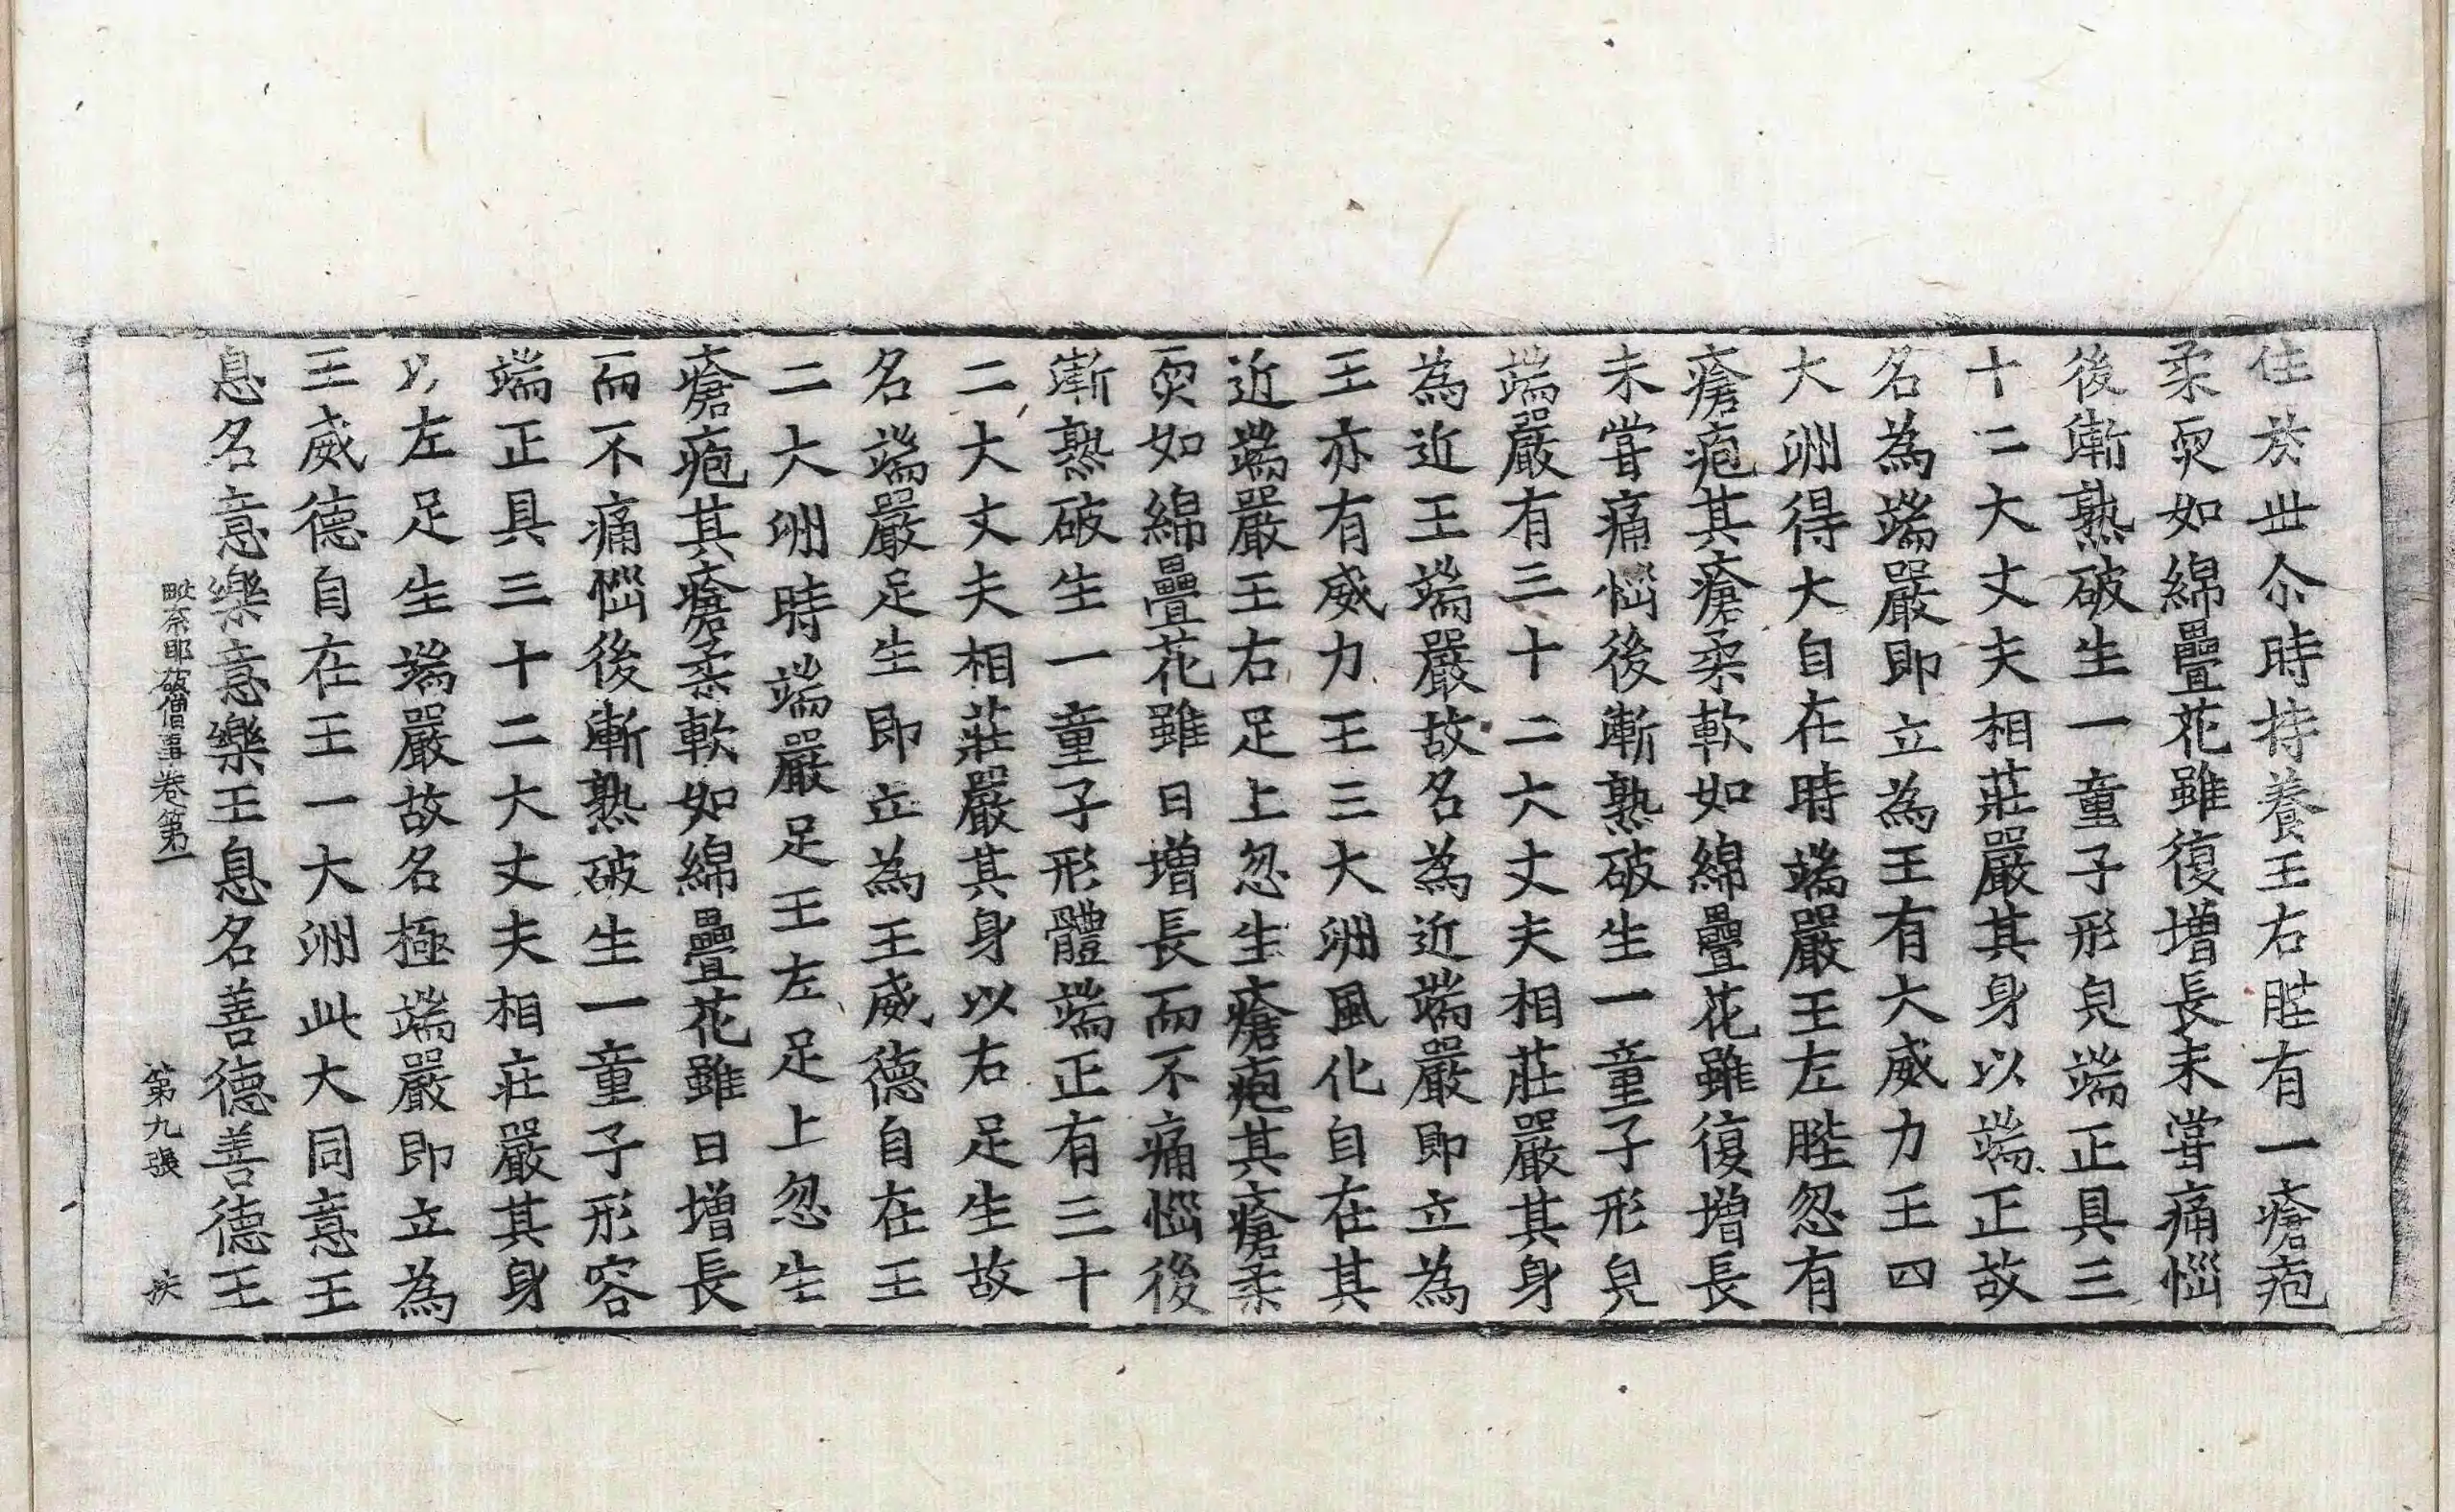 住於世尒時持養王右䏶有一瘡疱
柔耎如綿疊花雖復增長未甞痛惱
後漸熟破生一童子形皃端正具三
十二大丈夫相莊嚴其身以端正故
名為端嚴即立為王有大威力王四
大洲得大自在時端嚴王左䏶忽有
瘡疱其瘡柔軟如綿疊花雖復增長
未甞痛惱後漸熟破生一童子形皃
端嚴有三十二大丈夫相莊嚴其身
為近王端嚴故名為近端嚴即立為
王亦有威力王三大洲風化自在其
近端嚴王右足上忽生瘡疱其瘡柔
耎如綿疊花雖日增長而不痛惱後
漸熟破生一童子形體端正有三十
二大丈夫相莊嚴其身以右足生故
名端嚴足生即立為王威德自在王
二大洲時端嚴足王左足上忽生
瘡疱其瘡柔軟如綿疊花雖日增長
而不痛惱後漸熟破生一童子形容
端正具三十二大丈夫相莊嚴其身
以左足生端嚴故名極端嚴即立為
王威德自在王一大洲此大同意王
息名意樂意樂王息名善德善德王
毗奈耶破僧事卷第一 第九張 疾